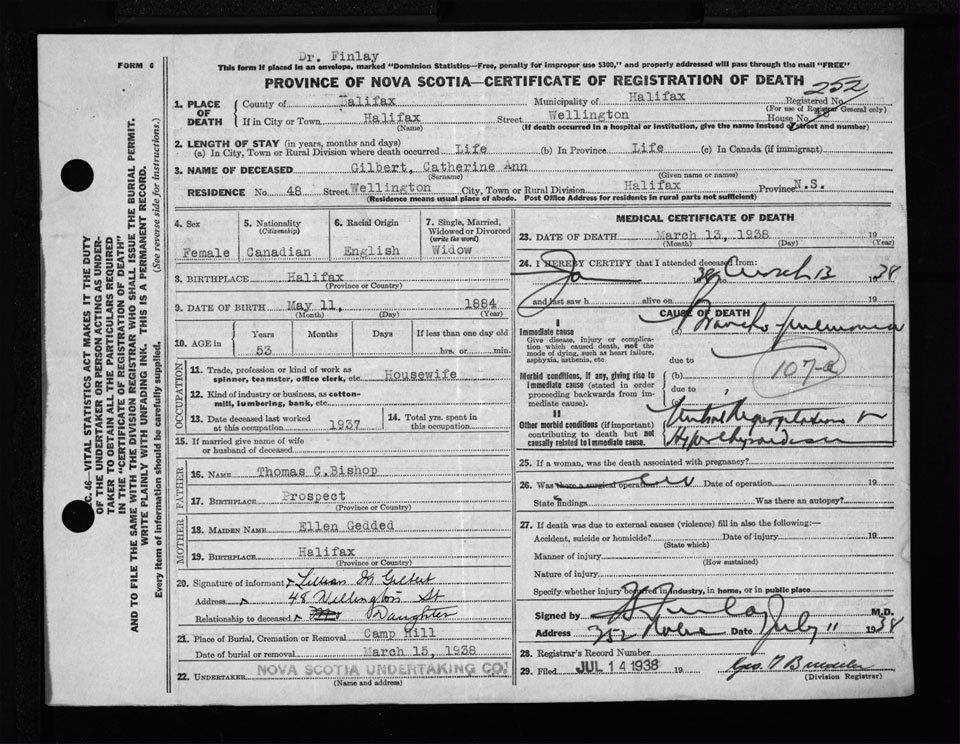 Dr. Finlay
FORM 6
This form if placed in an envelope, marked "Dominion Statistics—Free, penalty for improper use $300," and properly addressed will pass through the mail "FREE"
PROVINCE OF NOVA SCOTIA—CERTIFICATE OF REGISTRATION OF DEATH
252
1. PLACE OF DEATH
County of Halifax Municipality of Halifax Registered No.
(For use of Registrar General only)
If in City or Town Halifax Street Wellington House No. 48
(Name) (If death occurred in a hospital or institution, give the name instead of street and number)
2. LENGTH OF STAY (in years, months and days)
(a) In City, Town or Rural Division where death occurred Life (b) In Province Life (c) In Canada (if immigrant)
3. NAME OF DECEASED Gilbert, Catherine Ann
(Surname) (Given name or names)
RESIDENCE No. 48 Street Wellington City, Town or Rural Division Halifax Province N.S.
(Residence means usual place of abode. Post Office Address for residents in rural parts not sufficient)
4. Sex
Female
5. Nationality
(Citizenship)
Canadian
6. Racial Origin
English
7. Single, Married, Widowed or Divorced
(write the word)
Widow
8. BIRTHPLACE Halifax
(Province or Country)
9. DATE OF BIRTH May 11, 1884
(Month) (Day) (Year)
10. AGE in
Years Months Days If less than one day old
53 hrs. or min.
OCCUPATION
11. Trade, profession or kind of work as spinner, teamster, office clerk, etc. Housewife
12. Kind of industry or business, as cotton-mill, lumbering, bank, etc.
13. Date deceased last worked at this occupation 1937
14. Total yrs. spent in this occupation
15. If married give name of wife or husband of deceased
FATHER
16. NAME Thomas C. Bishop
17. BIRTHPLACE Prospect
(Province or Country)
MOTHER
18. MAIDEN NAME Ellen Gedded
19. BIRTHPLACE Halifax
(Province or Country)
20. Signature of informant Lillian M Gilbert
Address 48 Wellington St
Relationship to deceased Daughter
21. Place of Burial, Cremation or Removal Camp Hill
Date of burial or removal March 15, 1938
22. UNDERTAKER NOVA SCOTIA UNDERTAKING CO.
(Name and address)
MEDICAL CERTIFICATE OF DEATH
23. DATE OF DEATH March 13, 1938 19
(Month) (Day) (Year)
24. I HEREBY CERTIFY that I attended deceased from:
Jan 38 to March 13 1938
and last saw h alive on 19
CAUSE OF DEATH
I
Immediate cause
Give disease, injury or complication which caused death, not the mode of dying, such as heart failure, asphyxia, asthenia, etc.
(a) Broncho-pneumonia
due to
107-a
Morbid conditions, if any, giving rise to immediate cause (stated in order proceeding backwards from immediate cause).
(b)
due to
II
Other morbid conditions (if important) contributing to death but not causally related to immediate cause.
25. If a woman, was the death associated with pregnancy?
26. Was there a surgical operation? Date of operation 19
State findings Was there an autopsy?
27. If death was due to external causes (violence) fill in also the following:—
Accident, suicide or homicide? Date of injury 19
(State which)
Manner of injury
(How sustained)
Nature of injury
Specify whether injury occurred in industry, in home, or in public place
Signed by Finlay M.D.
Address 352 Robie Date July 11 1938
28. Registrar's Record Number
29. Filed JUL 14 1938 19
(Division Registrar)
C. 46—VITAL STATISTICS ACT MAKES IT THE DUTY
OF THE UNDERTAKER OR PERSON ACTING AS UNDER-
TAKER TO OBTAIN ALL THE PARTICULARS REQUIRED
IN THE "CERTIFICATE OF REGISTRATION OF DEATH"
AND TO FILE THE SAME WITH THE DIVISION REGISTRAR WHO SHALL ISSUE THE BURIAL PERMIT.
WRITE PLAINLY WITH UNFADING INK. THIS IS A PERMANENT RECORD.
Every item of information should be carefully supplied. (See reverse side for instructions.)